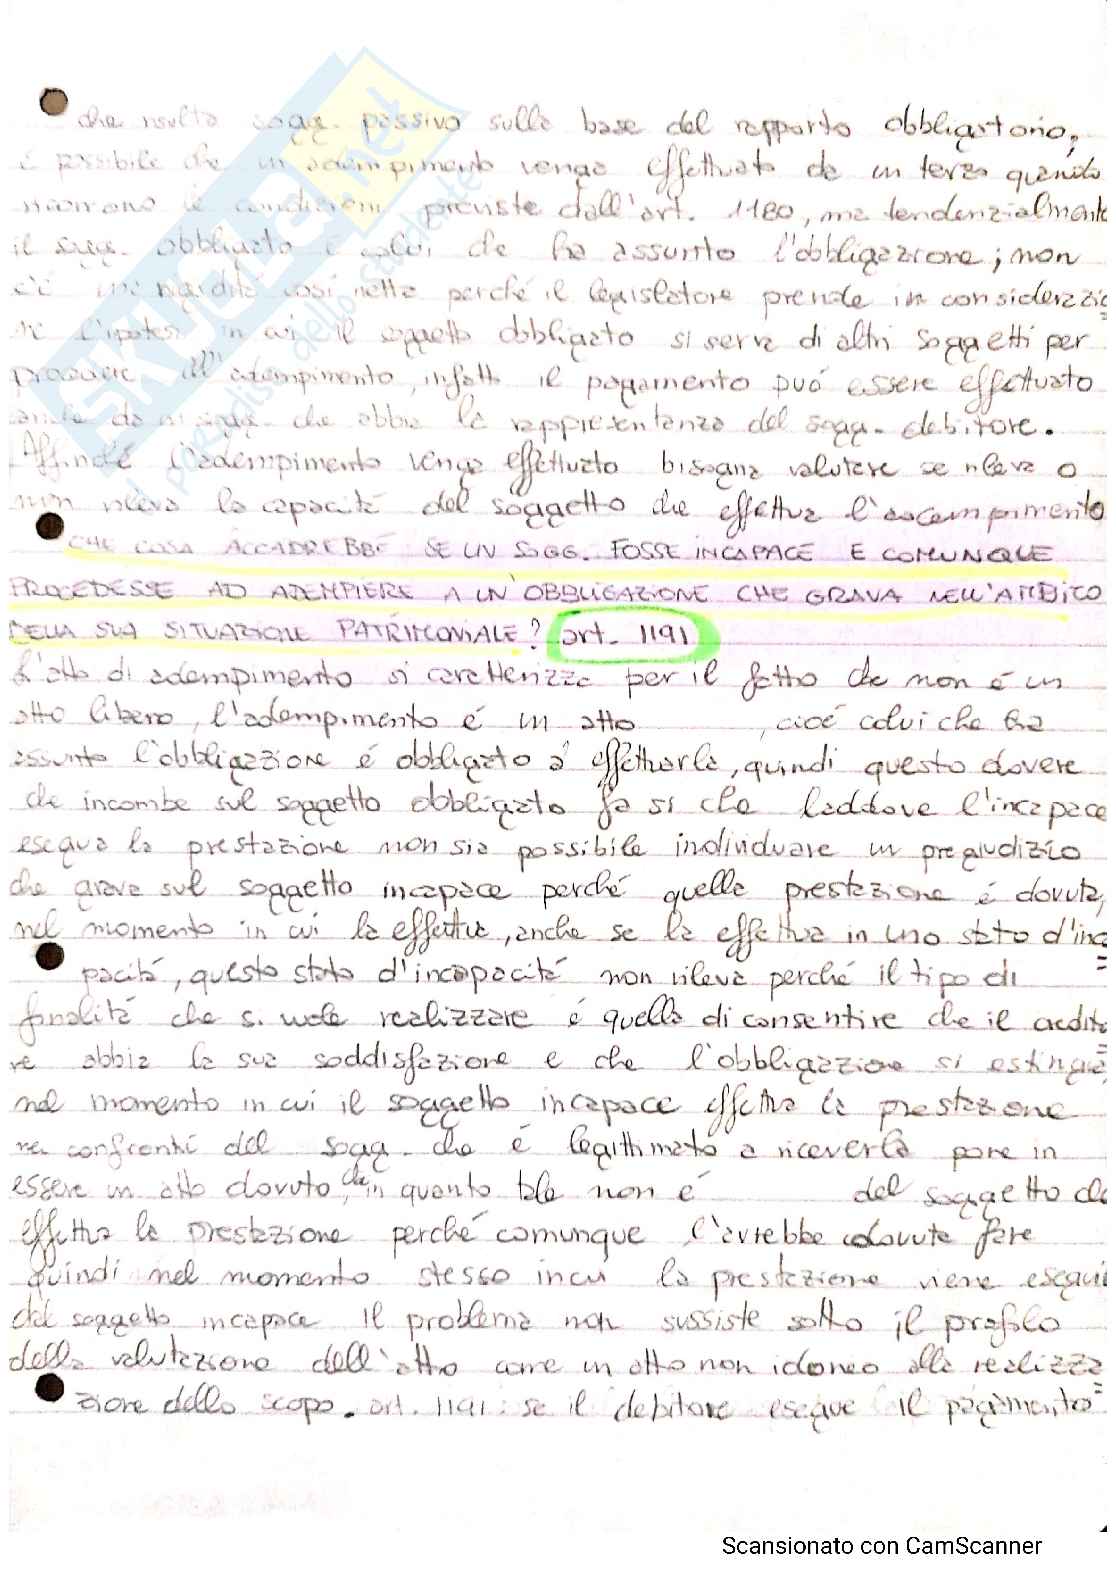 che risulta sogg. passivo sulla base del rapporto obbligatorio,
è possibile che un adempimento venga effettuato da un terzo quando
ricorrono le condizioni previste dall'art. 1180, ma tendenzialmente
il sogg. obbligato è colui che ha assunto l'obbligazione; non
c'è una rigidità così netta perché il legislatore prende in considerazio
ne l'ipotesi in cui il soggetto obbligato si serva di altri soggetti per
procedere all'adempimento, infatti il pagamento può essere effettuato
anche da un sogg. che abbia la rappresentanza del sogg. debitore.
Affinché l'adempimento venga effettuato bisogna valutare se rileva o
non rileva la capacità del soggetto che effettua l'adempimento
CHE COSA ACCADREBBE SE UN SOGG. FOSSE INCAPACE E COMUNQUE
PROCEDESSE AD ADEMPIERE A UN'OBBLIGAZIONE CHE GRAVA NELL'AMBITO
DELLA SUA SITUAZIONE PATRIMONIALE? art. 1191
L'atto di adempimento si caratterizza per il fatto che non è un
atto libero, l'adempimento è un atto , cioè colui che ha
assunto l'obbligazione é obbligato a effettuarla, quindi questo dovere
che incombe sul soggetto obbligato fa si che laddove l'incapace
esegua la prestazione non sia possibile individuare un pregiudizio
che grava sul soggetto incapace perché quella prestazione é dovuta,
nel momento in cui la effettua, anche se la effettua in uno stato d'inca
pacità, questo stato d'incapacità non rileva perché il tipo di
finalità che si vuole realizzare é quella di consentire che il credito
re abbia la sua soddisfazione e che l'obbligazione si estingua,
nel momento in cui il soggetto incapace effettua la prestazione
nei confronti del sogg. che é legittimato a riceverla pone in
essere un atto dovuto, che in quanto tale non é del soggetto che
effettua la prestazione perché comunque l'avrebbe dovuta fare
quindi nel momento stesso in cui la prestazione viene esegui
dal soggetto incapace il problema non sussiste sotto il profilo
della valutazione dell'atto come un atto non idoneo alla realizza
zione dello scopo. art. 1191: se il debitore esegue il pagamento
Scansionato con CamScanner